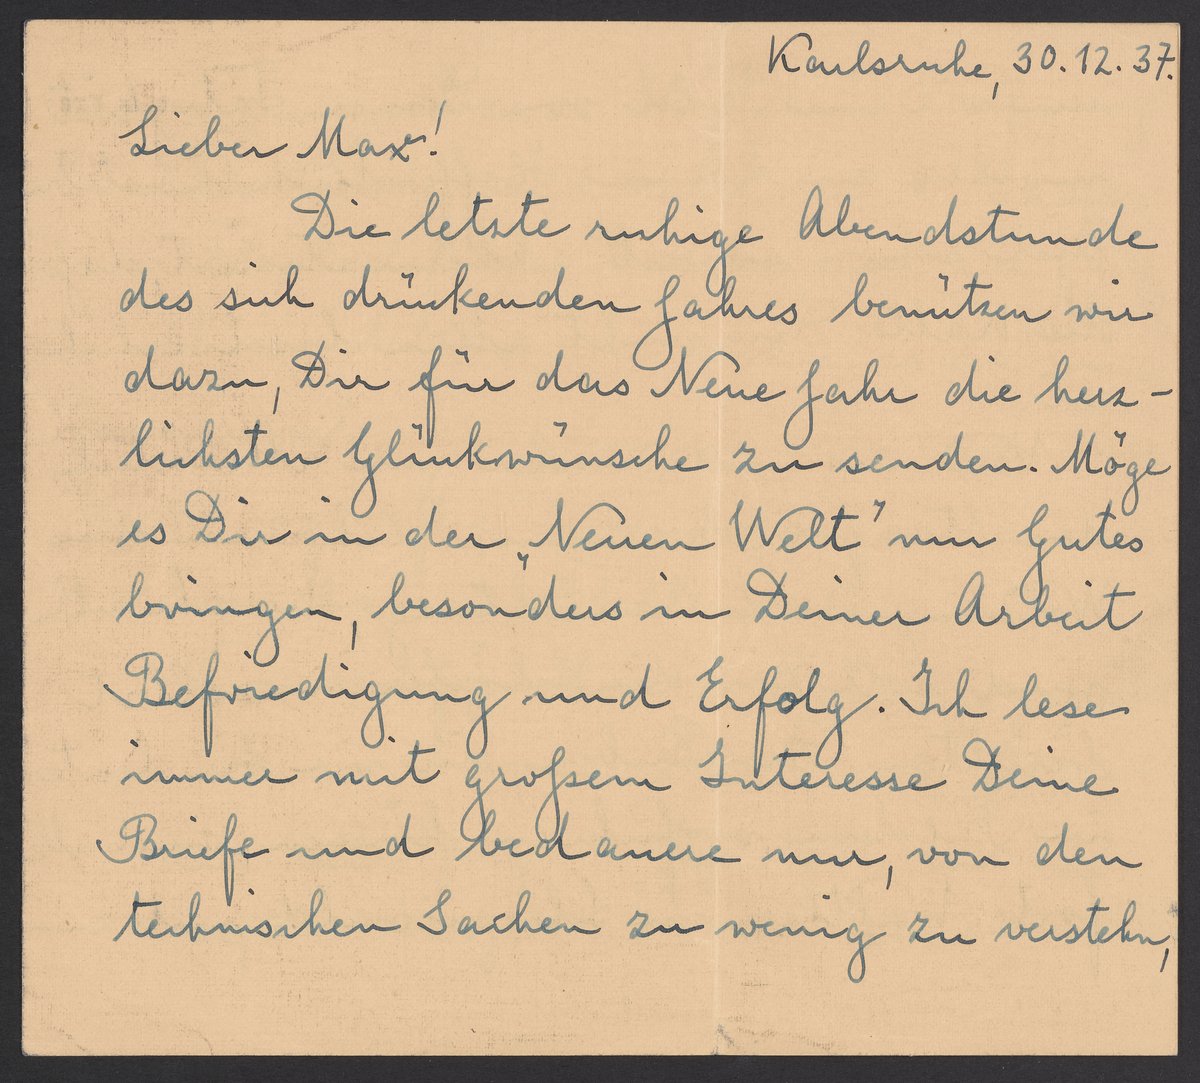 Karlsruhe, 30.12.37.
Lieber Max!
Die letzte ruhige Abendstunde
des sich drückenden Jahres benützen wir
dazu, Dir für das Neue Jahr die herz-
lichsten Glückwünsche zu senden. Möge
es Dir in der „Neuen Welt" nur Gutes
bringen, besonders in Deiner Arbeit
Befriedigung und Erfolg. Ich lese
immer mit großem Interesse Deine
Briefe und bedauere nur, von den
technischen Sachen zu wenig zu verstehn,